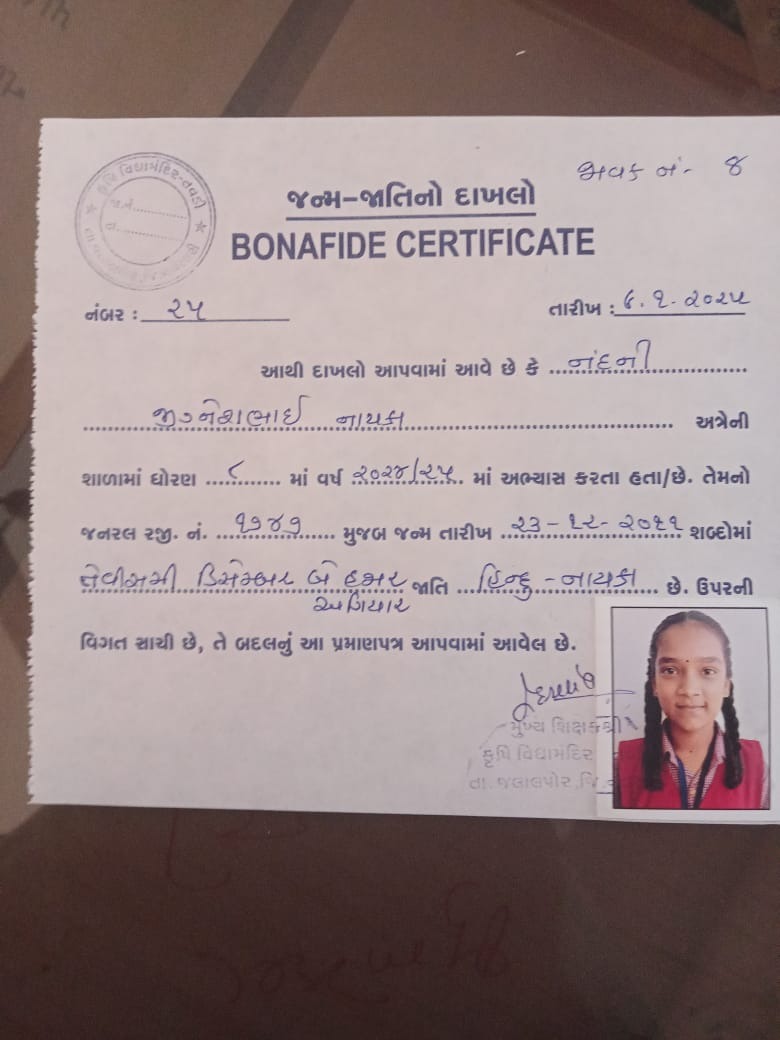 જાવક નં - ૪
જન્મ-જાતિનો દાખલો
BONAFIDE CERTIFICATE
કૃષિ વિદ્યામંદિર-તવડી
જા.નં.
તા.
નંબર : ૨૫
તારીખ : ૬.૧.૨૦૨૫
આથી દાખલો આપવામાં આવે છે કે નંદની
જીગ્નેશભાઈ નાયકા અત્રેની
શાળામાં ધોરણ ૮ માં વર્ષ ૨૦૨૪/૨૫ માં અભ્યાસ કરતા હતા/છે. તેમનો
જનરલ રજી. નં. ૧૭૪૧ મુજબ જન્મ તારીખ ૨૩-૧૨-૨૦૧૧ શબ્દોમાં
ત્રેવીસમી ડિસેમ્બર બે હજાર જાતિ હિન્દુ - નાયકા છે. ઉપરની
અગિયાર
વિગત સાચી છે, તે બદલનું આ પ્રમાણપત્ર આપવામાં આવેલ છે.
મુખ્ય શિક્ષકશ્રી
કૃષિ વિદ્યામંદિર
તા. જલાલપોર, જિ.